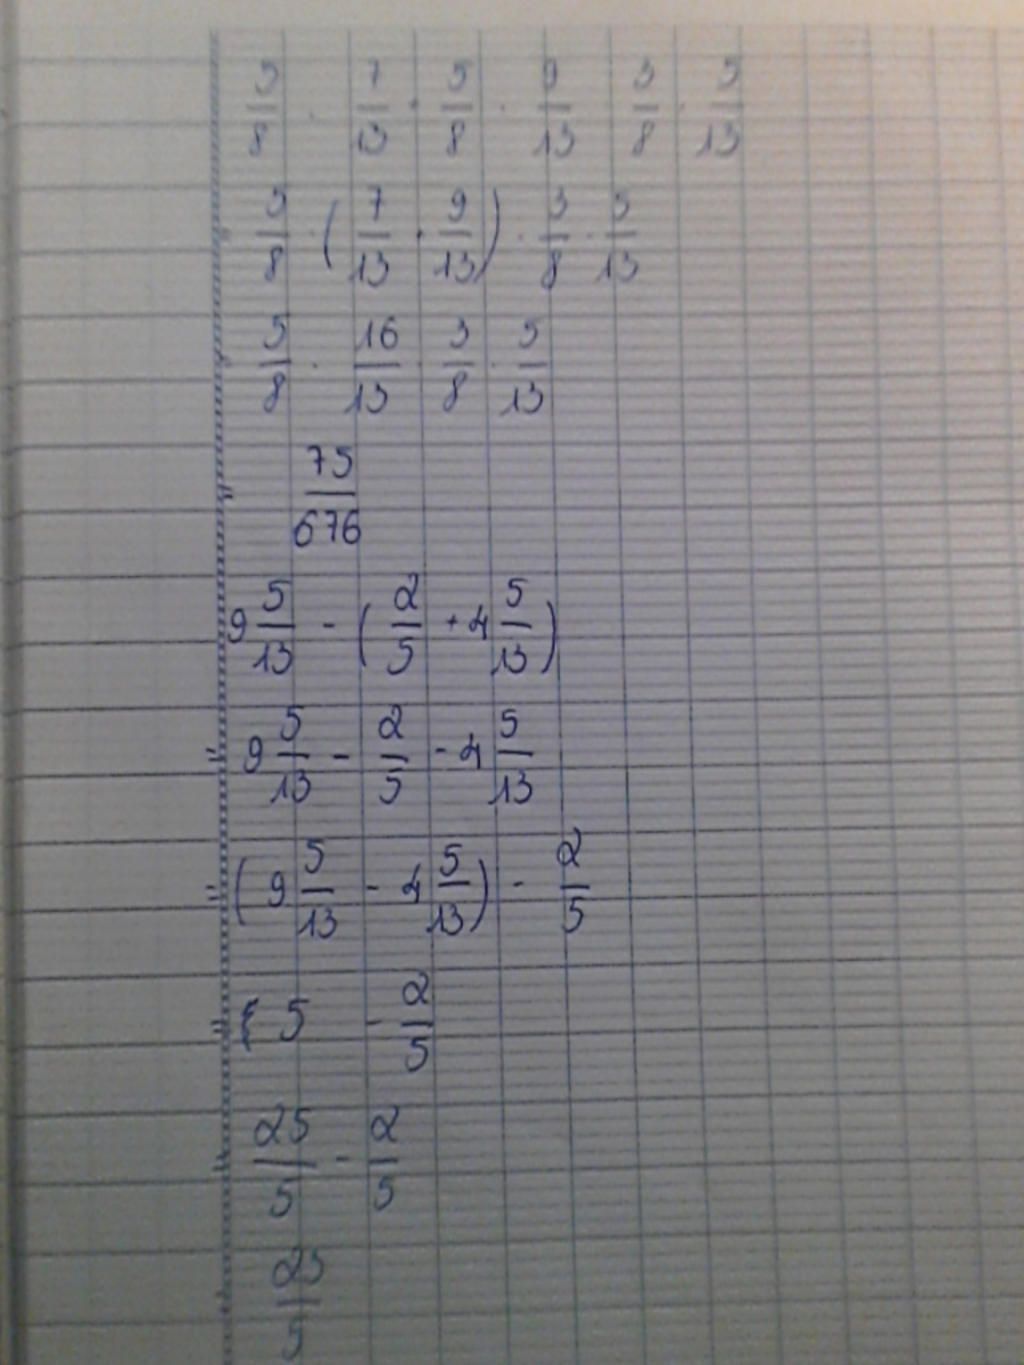 5/8 · 7/13 · 5/8 · 9/13 3/8 · 5/13
= 5/8 · (7/13 · 9/13) · 3/8 · 5/13
= 5/8 · 16/13 · 3/8 · 5/13
= 75/676
9 5/13 - (2/5 + 4 5/13)
= 9 5/13 - 2/5 - 4 5/13
= (9 5/13 - 4 5/13) - 2/5
= 5 - 2/5
= 25/5 - 2/5
= 23/5